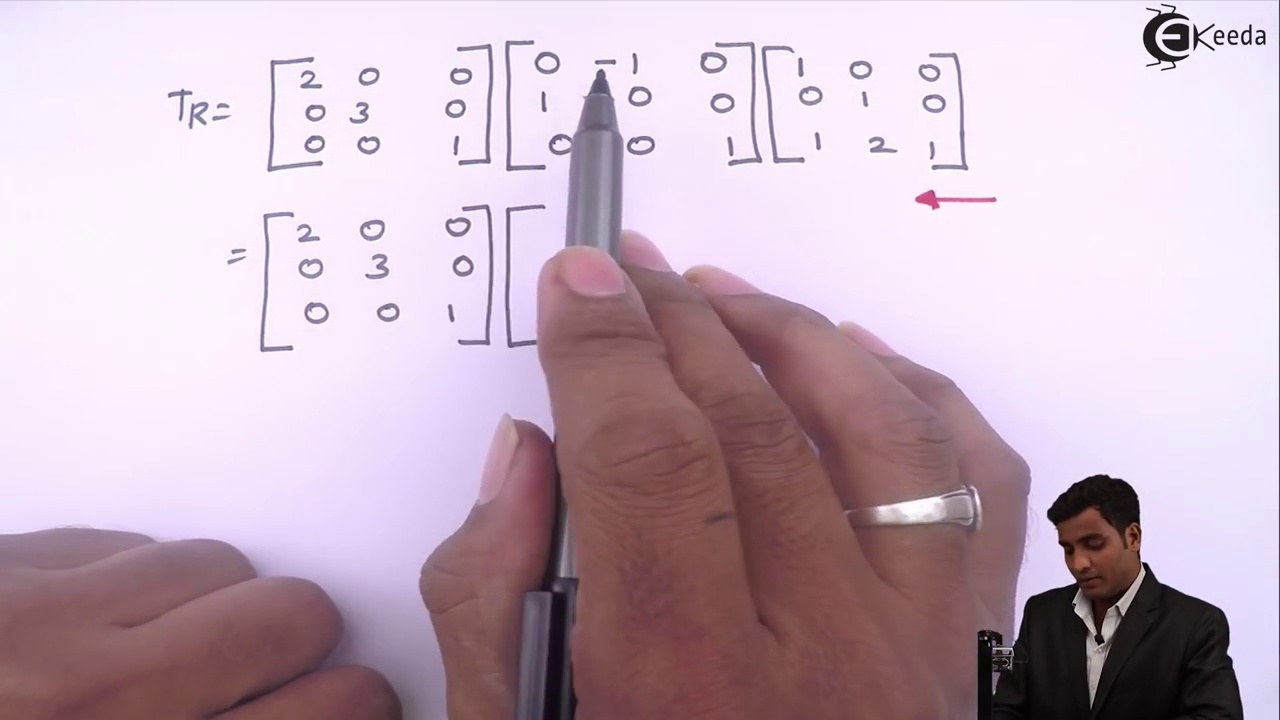 EKeeda
TR= [2 0 0] [0 -1 0] [1 0 0]
[0 3 0] [1 0 0] [0 1 0]
[0 0 1] [0 0 1] [1 2 1]
= [2 0 0] [
[0 3 0] [
[0 0 1] [